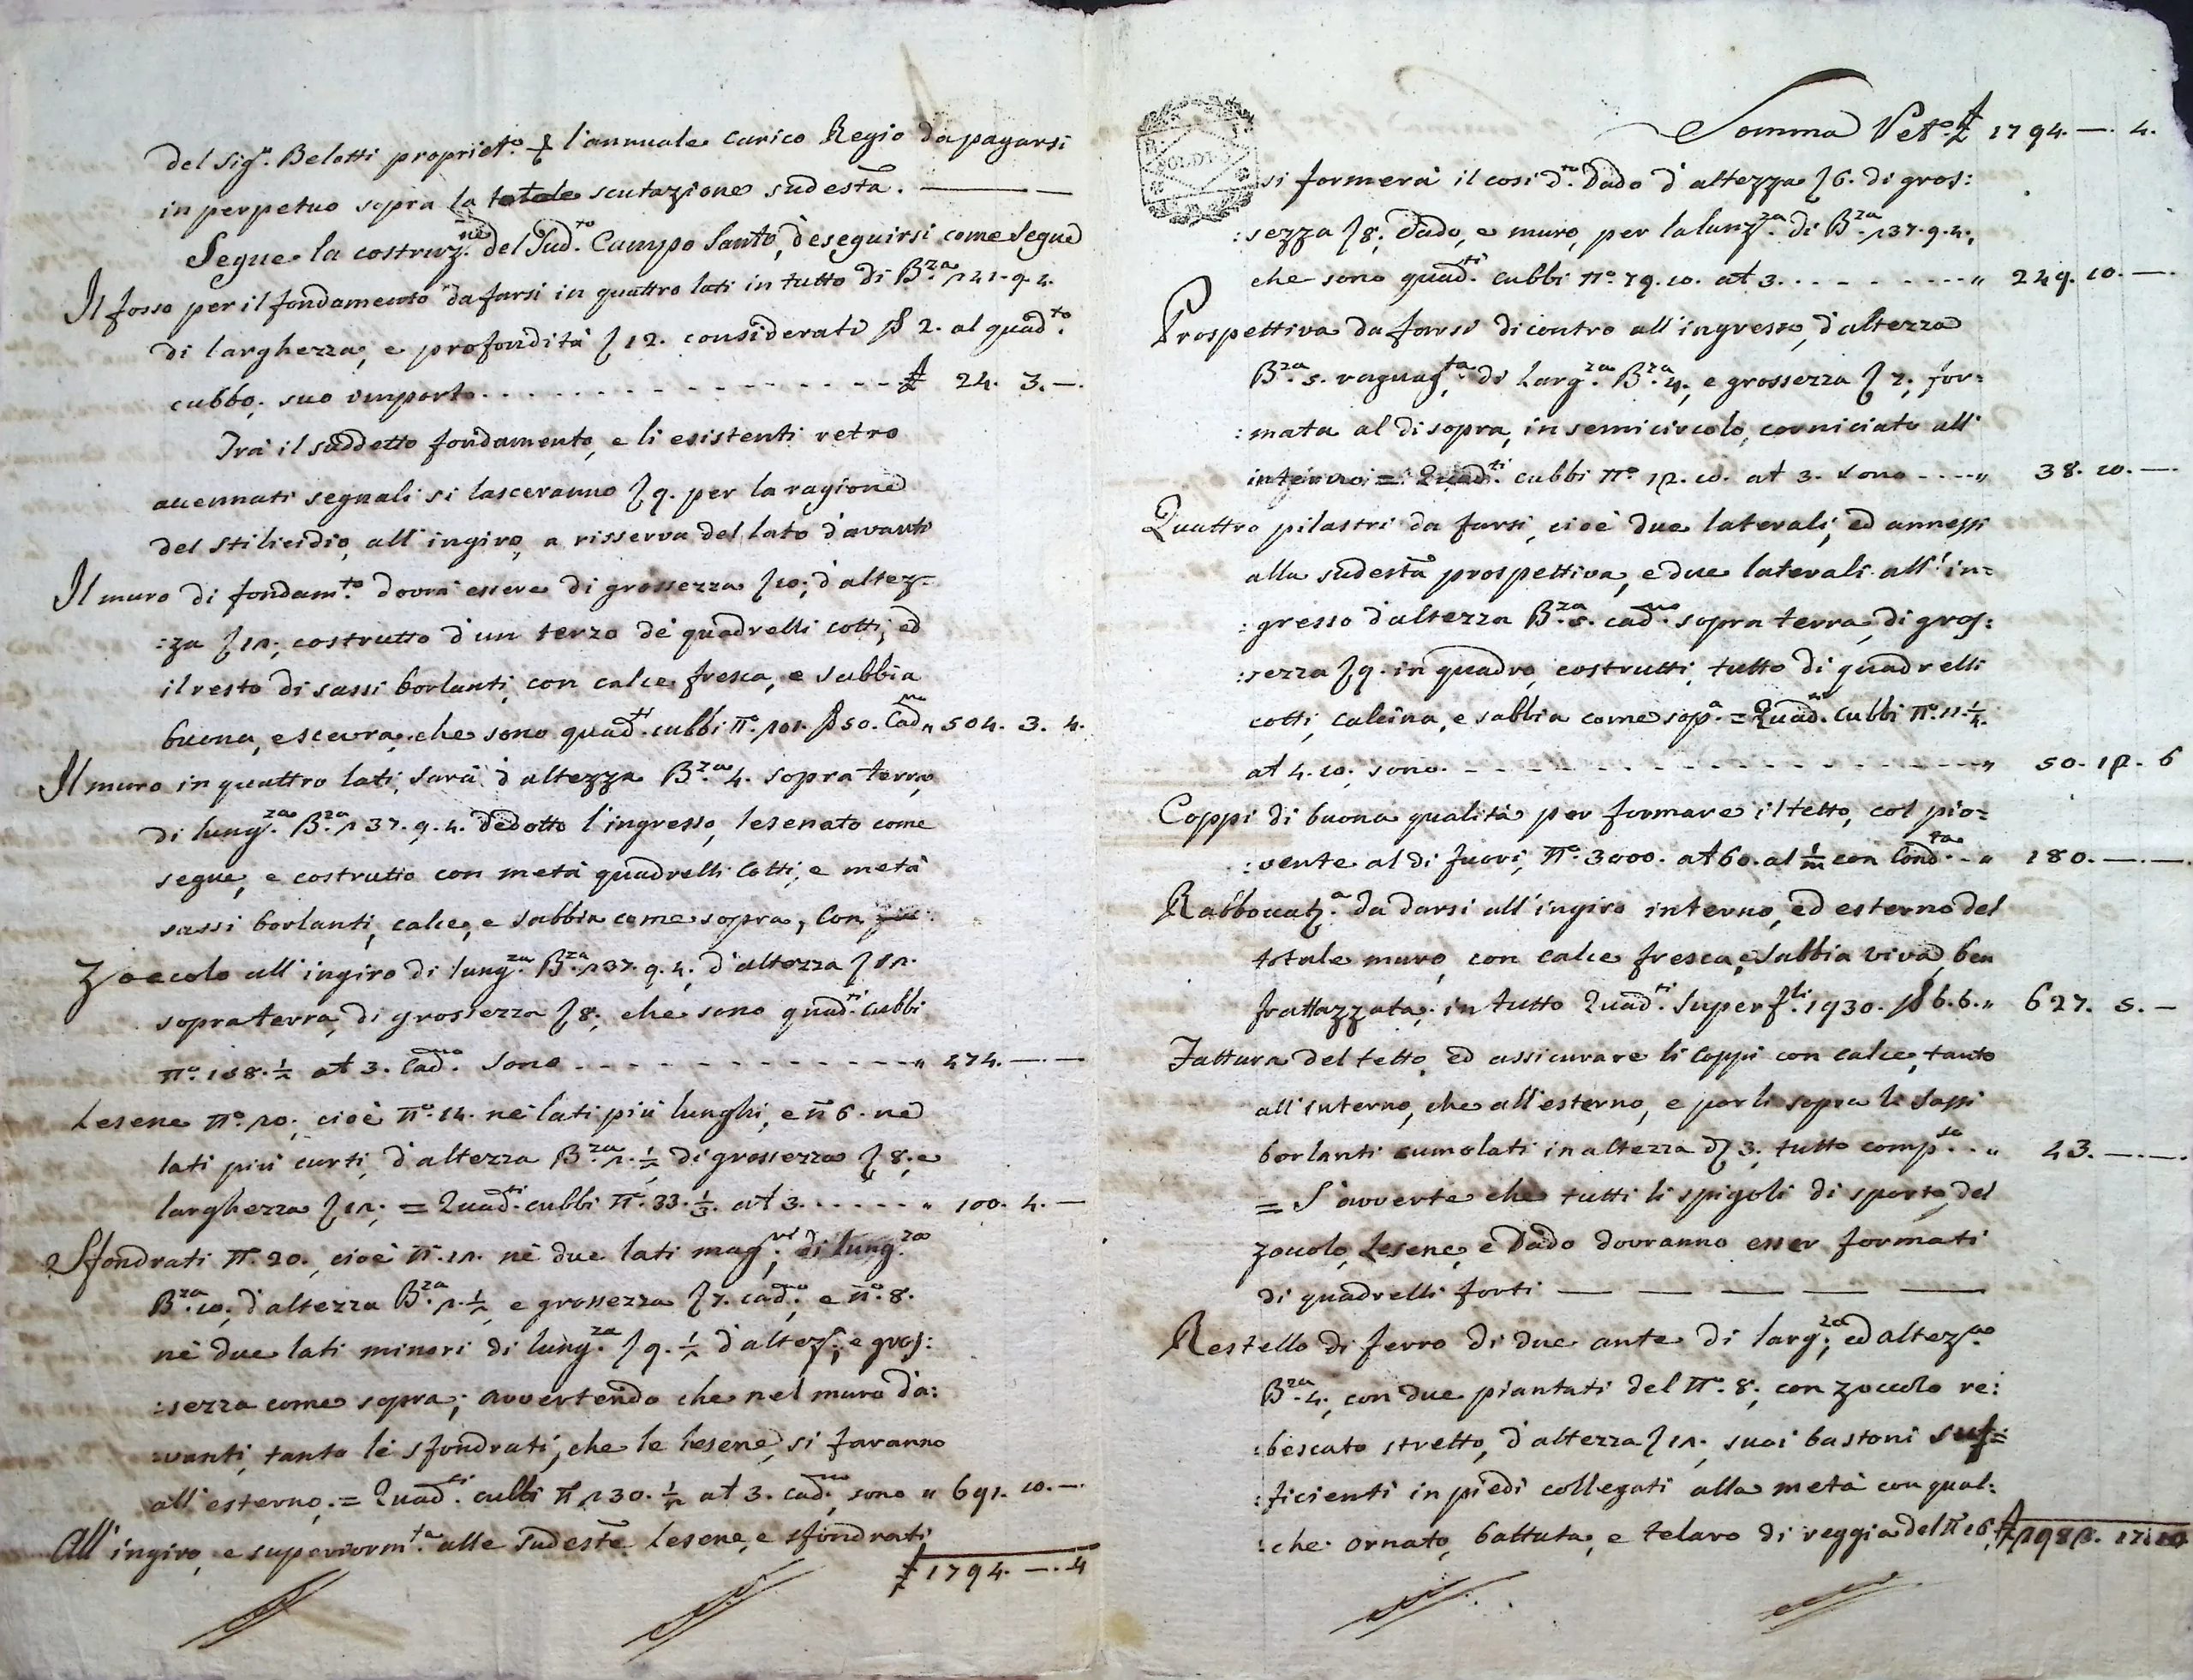 del Sig.r Belotti propriet.o per l'annuale carico Regio da pagarsi
in perpetuo sopra la totale scutazione sudesta. ———
Segue la costruz.ne del Sud.to Campo Santo, d'eseguirsi come Segue
Il fosso per il fondamento da farsi in quattro lati in tutto di B.za 141.9.4.
di larghezza, e profondità 12. considerato 2. al quad.to
cubbo, suo importo . . . . . . . . . . £ 24. 3. —.
Trà il suddetto fondamento, e li esistenti retro
accennati segnali si lasceranno 9. per la ragione
del stilicidio, all'ingiro, a risserva del lato d'avanti
Il muro di fondam.to dovrà essere di grossezza 10; d'altez-
:za 12; costrutto d'un terzo de quadrelli cotti, ed
il resto di sassi borlanti, con calce fresca, e sabbia
buona, e scevra, che sono quad.ti cubbi N.o 50. Cad.no " 504. 3. 4.
Il muro in quattro lati, sarà d'altezza B.za 4. sopra terra,
di lung.za B.za 137.9.4. dedotto l'ingresso, lesenato come
segue, e costrutto con metà quadrelli cotti, e metà
sassi borlanti, calce, e sabbia come sopra, Con
Zoccolo all'ingiro di lung.za B.za 137.9.4, d'altezza 12.
sopra terra, di grossezza 8, che sono quad.ti cubbi
N.o 158.½ at 3. Cad.no Sono . . . . . . . " 474. —. —
Lesene N.o 20; cioè N.o 14. nè lati più lunghi, e n.o 6. ne
lati più curti, d'altezza B.za 2.½ di grossezza 8, e
larghezza 12; = Quad.ti cubbi N.o 33.⅓. at 3. . . . . . " 100. 4. —
Sfondrati N.o 20., cioè N.o 12. nè due lati mag.ri di lung.za
B.za 10, d'altezza B.za 2.½ e grossezza 7. cad.no, e n.o 8.
nè due lati minori di lung.za 9.½ d'altez.a, e gros:
:sezza come sopra; avvertendo che nel muro da:
:vanti, tanto lè sfondrati, che le lesene, si faranno
all'esterno. = Quad.ti cubbi N.o 230.½ at 3. cad.no sono " 691. 10. —.
All'ingiro, e superiorm.te alle sudeste lesene, e sfondrati
£ 1794. —. 4
Somma Ret.o £ 1794. —. 4.
si formerà il cosi d.to Dado d'altezza 6. di gros:
:sezza 8; Dado, e muro, per la lunz.za di B.za 137.9.4.,
che sono quad.ti cubbi N.o 79.10. at 3. . . . . . . . . " 249. 10. —.
Prospettiva da farsi dicontro all'ingresso, d'altezza
B.za 5. raguag.ta, di Larg.za B.za 4, e grossezza 7; for=
:mata al disopra, in semicircolo, corniciato all'
intorno; = Quad.ti cubbi N.o 12.10. at 3. sono . . . . " 38. 10. —.
Quattro pilastri da farsi, cioè due laterali, ed annessi
alla sudesta prospettiva, e due laterali all'in=
:gresso d'altezza B.za 5. cad.no sopra terra, di gros:
:sezza 9. in quadro, costrutti, tutto di quadrelli
cotti, calcina, e sabbia come sop.a = Quad.ti Cubbi N.o 11.¼.
at 4.10. sono. . . . . . . . . . " 50. 12. 6
Coppi di buona qualità per formare il tetto, col pio=
:vente al di fuori, N.o 3000. at 60. al 1/m con Cond.ta . . " 180. —. —.
Rabboccatz.a da darsi all'ingiro interno, ed esterno del
totale muro, con calce fresca, e Sabbia viva, ben
frattazzata, in tutto Quad.ti Superf.li 1930. 6.6. " 627. 5. —
Fattura del tetto, ed assicurare li Coppi con calce, tanto
all'interno, che all'esterno, e porli sopra li Sassi
borlanti cumolati in altezza 3, tutto comp.so . . " 43. —. —.
= S'avverte che tutti li spigoli di sporto, del
zoccolo, Lesene, e Dado dovranno esser formati
di quadrelli forti — — — — —
Restello di ferro di due ante di larg.za, ed altez.za
B.za 4, con due piantati del N.o 8, con zoccolo re:
:bescato stretto, d'altezza 12, suoi bastoni suf=
:ficienti in piedi collegati alla metà con qual:
:che ornato, battuta, e telaro di reggia del N.o 16, £ 2982. 17. 10